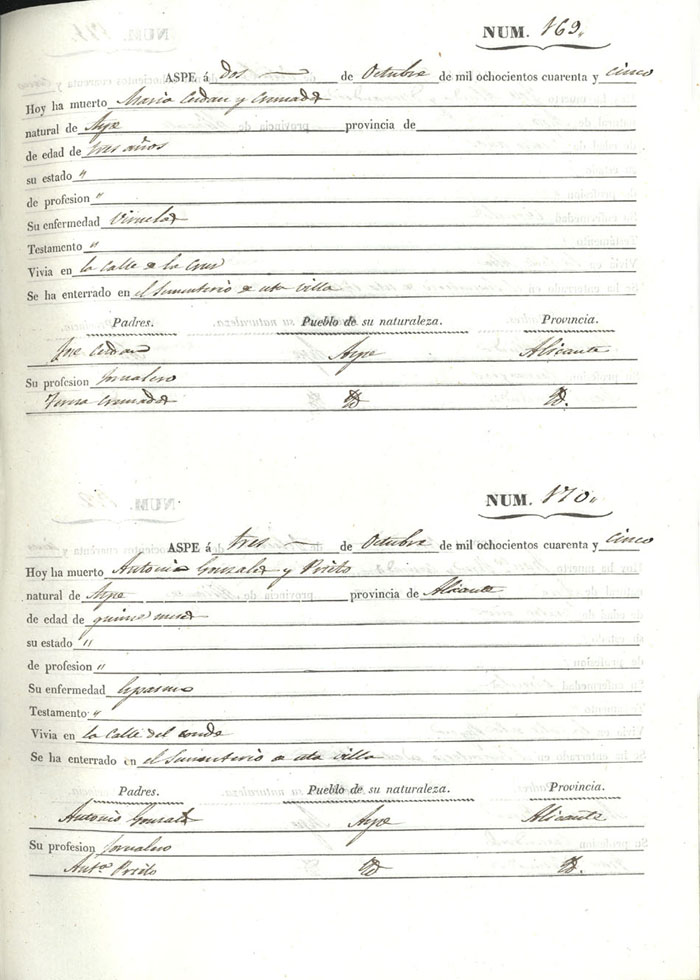 NUM. 169.
ASPE á dos de Octubre de mil ochocientos cuarenta y cinco
Hoy ha muerto Maria Cerdan y Cremades
natural de Aspe provincia de
de edad de tres años
su estado "
de profesion "
Su enfermedad Viruelas
Testamento "
Vivia en la Calle de la Cruz
Se ha enterrado en el Simenterio de esta Villa
Padres. Pueblo de su naturaleza. Provincia.
Jose Cerdan Aspe Alicante
Su profesion Jornalero
Teresa Cremades Id Id.
NUM. 170.
ASPE á tres de Octubre de mil ochocientos cuarenta y cinco
Hoy ha muerto Antonia Gonzalez y Prieto
natural de Aspe provincia de Alicante
de edad de quince meses
su estado "
de profesion "
Su enfermedad
Testamento "
Vivia en la Calle del Conde
Se ha enterrado en el Simenterio de esta Villa
Padres. Pueblo de su naturaleza. Provincia.
Antonio Gonzalez Aspe Alicante
Su profesion Jornalero
Antª Prieto Id Id.